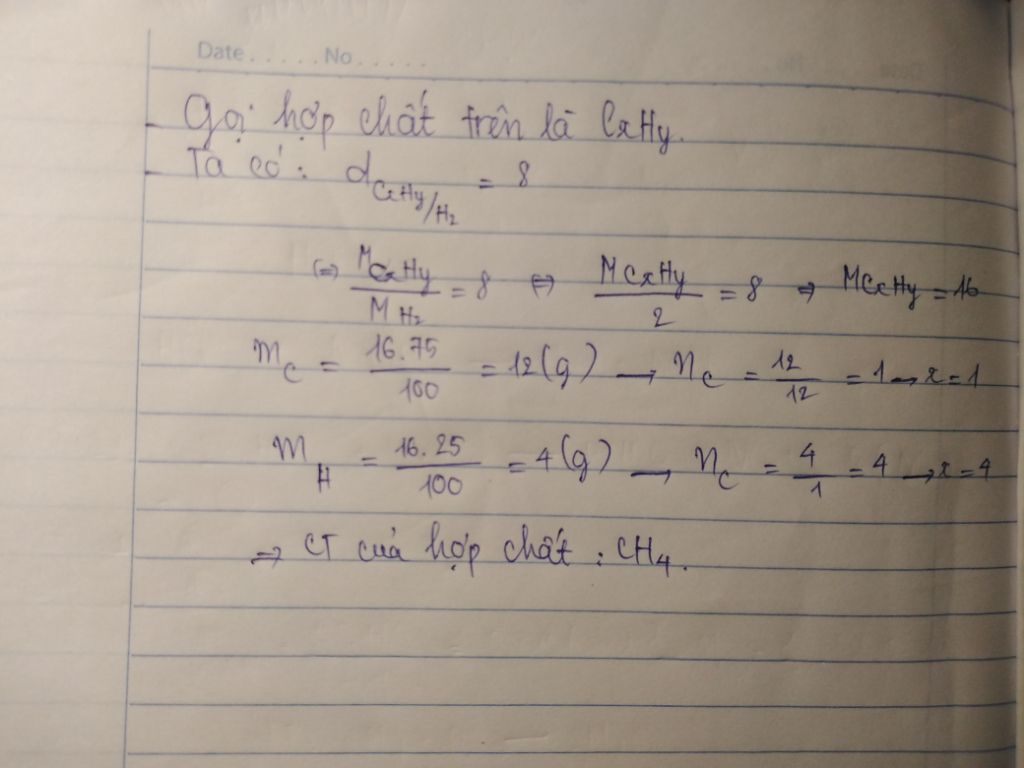 Date . . . . . No . . . . .
Gọi hợp chất trên là CxHy.
Ta có: d CxHy/H₂ = 8
(=) MCxHy / MH₂ = 8 ⇔ MCxHy / 2 = 8 ⇒ MCxHy = 16
mC = 16.75 / 100 = 12(g) → nC = 12 / 12 = 1 → x = 1
mH = 16.25 / 100 = 4(g) → nC = 4 / 1 = 4 → x = 4
⇒ CT của hợp chất : CH₄.